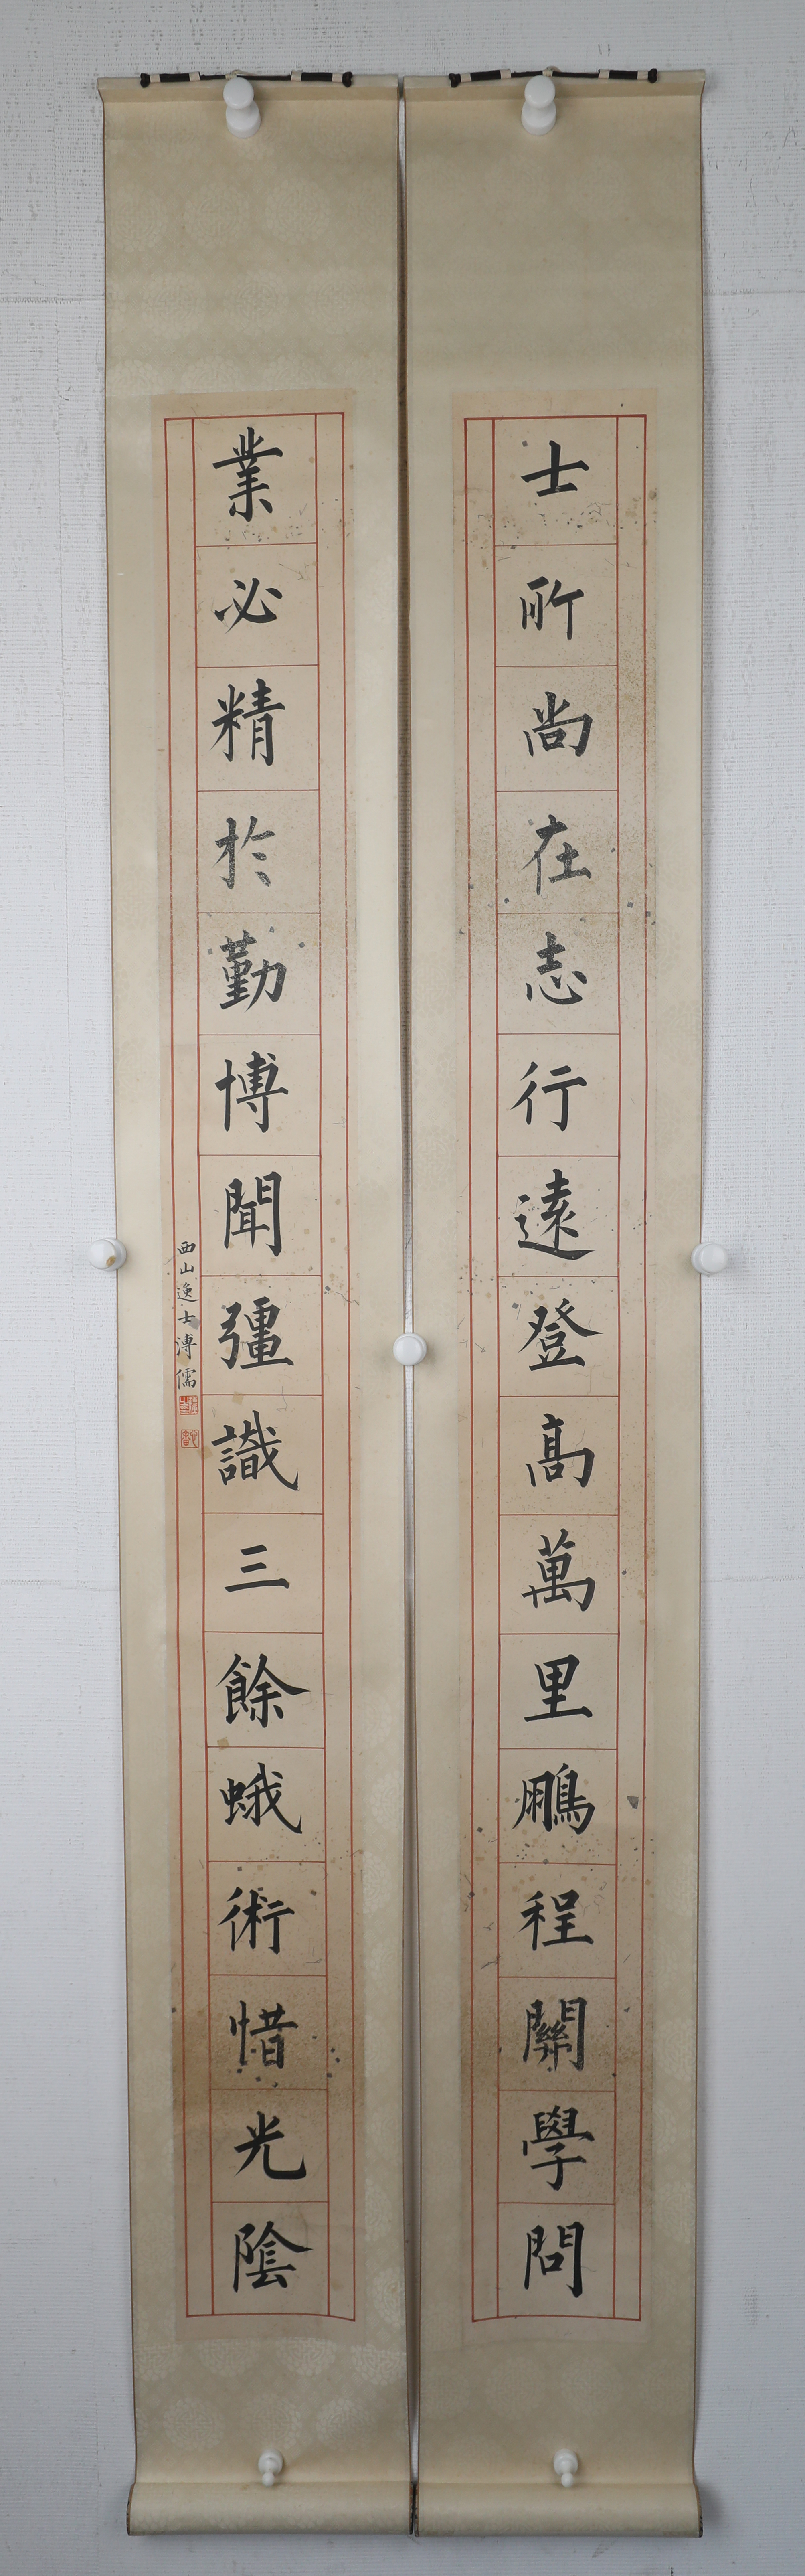 士所尚在志行遠登高萬里鵬程關學問
業必精於勤博聞彊識三餘蛾術惜光陰
西山逸士溥儒